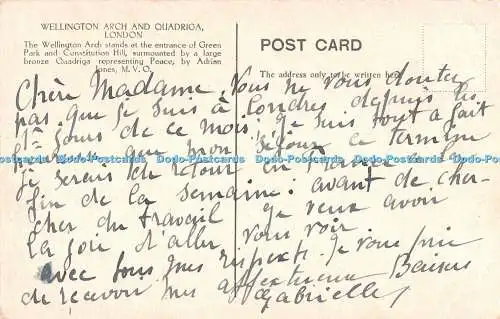 WELLINGTON ARCH AND QUADRIGA,
LONDON
The Wellington Arch stands at the entrance of Green
Park and Constitution Hill, surmounted by a large
bronze Quadriga representing Peace, by Adrian
Jones, M.V.O.
POST CARD
The address only to be written here
Chère Madame, Vous ne vous doutez
pas que je suis à Londres depuis les
1ers jours de ce mois. Je suis tout à fait
que mon séjour se termine
je serais de retour en à la
fin de la semaine. avant de cher-
cher du travail je veux avoir
la joie d'aller vous voir.
avec tous mes respects. Je vous prie
de recevoir mes affectueux Baisers
Gabrielle
Dodo-Postcards Dodo-Postcards Dodo-Postcards Dodo-Postcards Dodo-Postcards